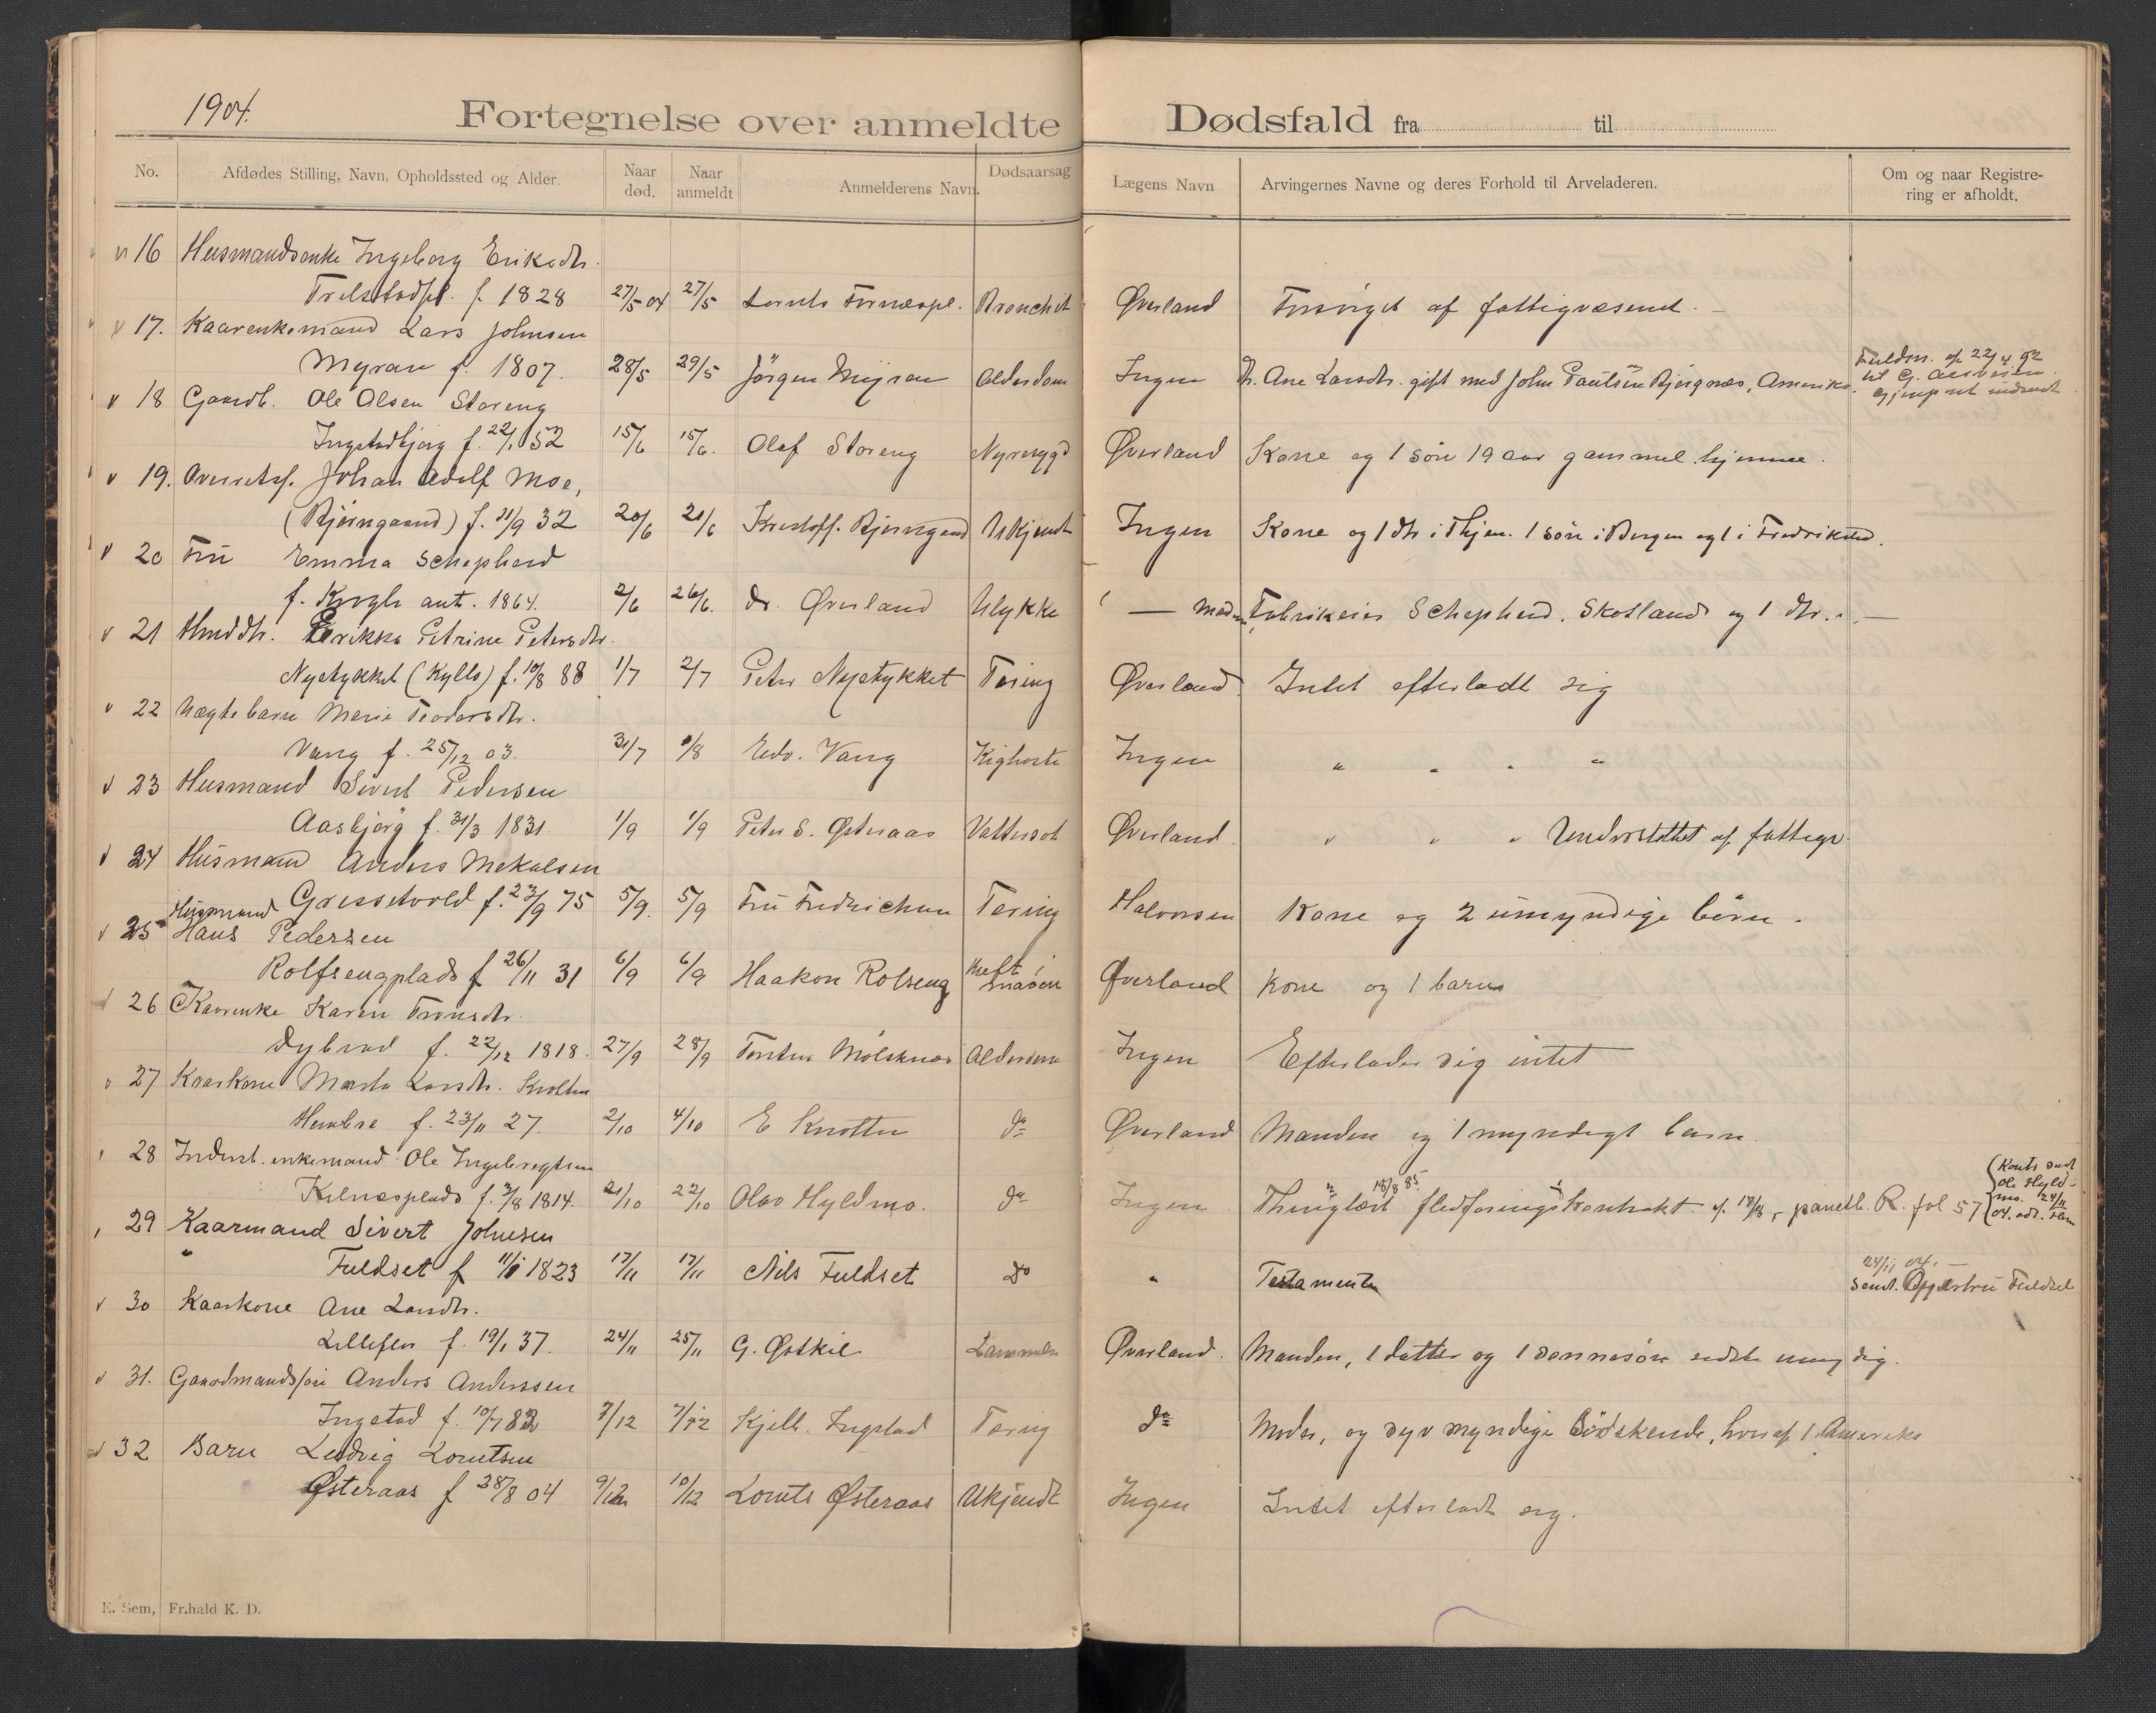 1904.
Fortegnelse over anmeldte Dødsfald fra til
No. Afdødes Stilling, Navn, Opholdssted og Alder. Naar død. Naar anmeldt Anmelderens Navn. Dødsaarsag Lægens Navn Arvingernes Navne og deres Forhold til Arveladeren. Om og naar Registrering er afholdt.
16 Husmandsenke Ingeborg Eriksdtr.
f. 1828 27/5 04 27/5 Bronchit Øverland Forsörget af fattigvæsenet. –
17. Kaarenkemand Lars Johnsen
Myran f. 1807. 28/5 29/5 Jörgen Myran Alderdom Ingen Dr. Ane Larsdtr. gift med John Paulsen Bjergnæs, Amerika.
18 Gaardb. Ole Olsen Storeng
Ingstadbjørg f. 22/1 52 15/6 15/6. Olaf Storeng Nyresygd Øverland Kone og 1 sön 19 aar gammel hjemme.
19. Oversetsf. Johan Adolf Moe,
(Bjerngaard) f. 21/9 32 20/6 21/6 Kristoff. Bjerngaard Ukjendt Ingen Kone og 1 dtr i Thjem. 1 sön i Bergen og 1 i Fredriksted.
20 Fru Emma Schepherd
f. Krogh ant. 1864. 2/6 26/6. Dr. Øverland Ulykke — Fabrikeier Schepherd. Skotland og 1 dtr. —
21 Hmddtr. Erikka Petrine Petersdtr.
Nystykket (Kyllo) f. 10/8 88 1/7 2/7 Peter Nystykket Tæring Øverland Intet efterladt sig
22 Uægte barn Marie Teodorsdtr.
Vang f. 25/12 03. 31/7 1/8 Edv. Vang Kighoste Ingen " " " "
23 Husmand Sivert Pedersen
Aasbjörg f. 31/3 1831 1/9 1/9 Peter S. Østeraas Vattersot Øverland. " " " Understöttet af fattigv.
24 Husmand Anders Mekalsen
Gressetvold f. 23/9 75 5/9. 5/9 Fru Fredrichsen Tæring Halvorsen Kone og 2 umyndige börn.
25 Husmand Hans Pedersen
Rolfsengplads f 26/11 31 6/9 6/9 Haakon Rolseng Kreft i Øverland Kone og 1 barn
26 Kaarenke Karen Tronsdtr.
Dybvad f. 22/12 1818. 27/9 28/9 Torsten Mölsknæs Alderdom Ingen Efterlader sig intet
27 Kaarkone Marta Larsdtr. Knotten
Hembre f. 23/11 27. 2/10 4/10 E Knotten do Øverland Manden og 1 myndigt barn.
28 Inderst. enkemand Ole Ingebregtsen
Kilnæsplads f. 3/8 1814. 21/10 22/10 Olav Hyldmo. do Ingen Thinglæst 18/8 85. fledföringskontrakt af 17/8, panteb. R. fol 57
29 Kaarmand Sivert Johnsen
" Fuldset f 1823 17/11 17/11 Nils Fuldset do " Testamente 24/11 04. — Sendt. Fuldset
30 Kaarkone Ane Larsdtr.
Lillefln f. 19/1 37. 24/11 25/11 G. Østkil Lammelse Øverland. Manden, 1 datter og 1 sönnesön
31. Gaardmandssön Anders Anderssen
Ingstad f. 10/7 82 7/12 7/12 Kjell. Ingstad Tæring do Moder, og syv myndige Södskende, hvoraf 1 Amerika
32 Barn Ludvig Lorntsen
Østeraas f 28/8 04 9/12 10/12 Lornts Østeraas Ukjendt Ingen Intet efterladt sig.
E. Sem, Fr.hald K. D.